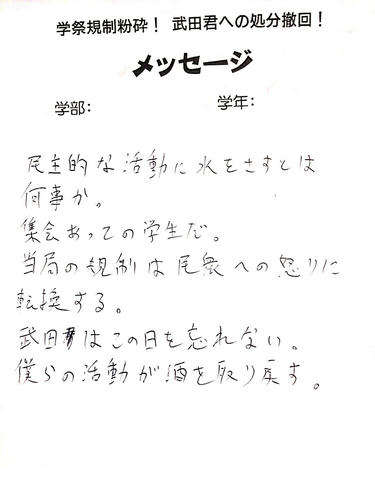 学祭規制粉砕！ 武田君への処分撤回！
メッセージ
学部：
学年：
民主的な活動に水をさすとは
何事か。
集会あっての学生だ。
当局の規制は民衆への怒りに
転換する。
武田はこの日を忘れない。
僕らの活動が酒を取り戻す。